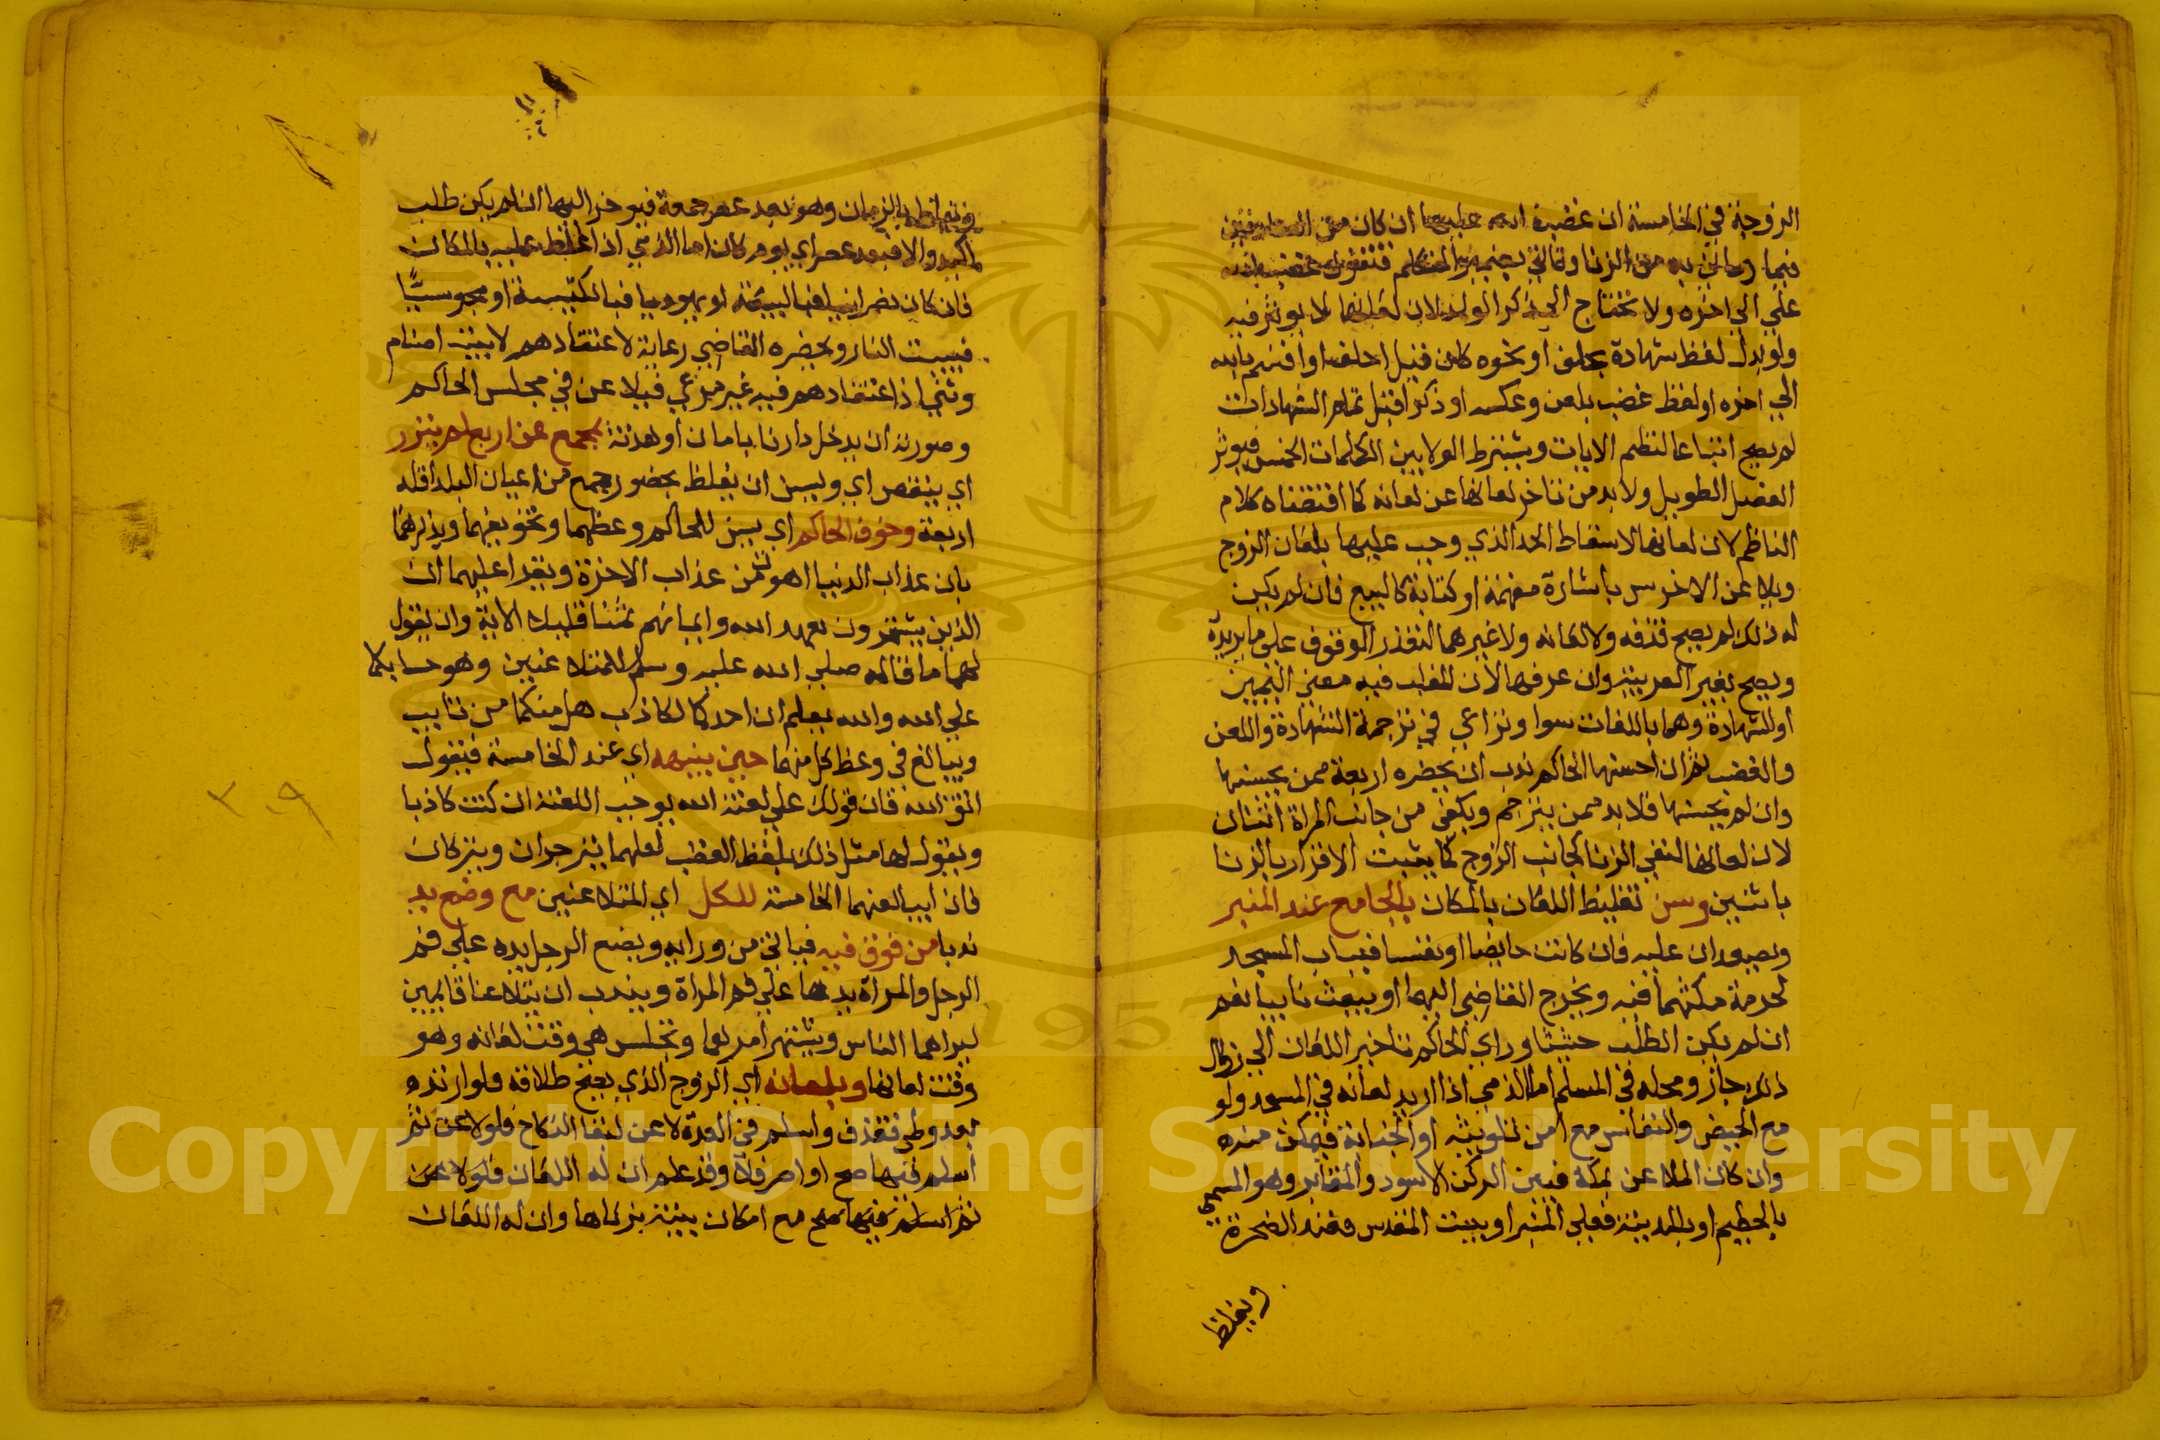 الزوجة في الخامسة ان غضب الله عليها ان كان من الصادقين
فيما رماني به من الزنا وتاتي بضمير المتكلم فتقول غضب الله
علي الي اخره ولا تحتاج الي ذكر الولد لان لعانها لا يوثر فيه
ولو بدل لفظ شهادة بحلف او نحوه كان قيل احلف او اقسم بالله
الي اخره او لفظ غضب بلعن وعكسه او ذكرا قبل تمام الشهادات
لم يصح اتباعا لنظم الايات ويشترط الولا بين الكلمات الخمس فيوثر
الفصل الطويل ولا بد من تاخر لعانها عن لعانه كما اقتضاه كلام
الناظم لان لعانها لاسقاط الحد الذي وجب عليها بلعان الزوج
ويلاعن الاخرس باشارة مفهمة او كتابة كالبيع فان لم يكن
له ذلك لم يصح قذفه ولا لعانه ولا غيرهما لتعذر الوقوف على ما يريده
ويصح بغير العربية وان عرفها لان المغلب فيه معني اليمين
او الشهادة وهما باللغات سوا وتراعي في ترجمة الشهادة واللعن
والغضب ثم ان احسنها الحاكم ندب ان يحضره اربعة ممن يحسنها
وان لم يحسنها فلا بد ممن يترجم ويكفي من جانب المراة اثنان
لان لعانها لنفي الزنا كجانب الزوج كما يثبت الاقرار بالزنا
باثنين وسن تغليظ اللعان بالمكان بالجامع عند المنبر
ويصعدان عليه فان كانت حايضا او نفسا فبباب المسجد
لحرمة مكثهما فيه ويخرج القاضي اليها او يبعث نايبا نعم
ان لم يكن الطلب حثيثا وراي الحاكم تاخير اللعان الي زوال
ذلك جاز ومحله في المسلم اما الذمي اذا اريد لعانه في المسجد ولو
مع الحيض والنفاس مع امن تلويثه او الجنابة فيمكن منه
وان كان الملاعن بمكة فبين الركن الاسود والمقام وهو المسمي
بالحطيم او بالمدينة فعلي المنبر او ببيت المقدس فعند الصخرة
ويغلظ
ويغلظ بالزمان وهو بعد عصر جمعة فيوخر اليها ان لم يكن طلب
اكيد والا فبعد عصر اي يوم كان اما الذمي اذا غلظ عليه بالمكان
فان كان نصرانيا فبالبيعة او يهوديا فبالكنيسة او مجوسيا
فببيت النار ويحضره القاضي رعاية لاعتقادهم لا ببيت اصنام
وثني اذ اعتقادهم فيه غير مرعي فيلاعن في مجلس الحاكم
وصورته ان يدخل دارنا بامان او هدنة بجمع عن اربع لم ينزر
اي ينقص اي ويسن ان يغلظ بحضور جمع من اعيان البلد اقله
اربعة وخوف الحاكم اي يسن للحاكم وعظهما وتخويفهما ويذكرهما
بان عذاب الدنيا اهون من عذاب الاخرة ويقرا عليهما ان
الذين يشترون بعهد الله وايمانهم ثمنا قليلا الاية وان يقول
لهما ما قاله صلي الله عليه وسلم للمتلاعنين وهو حسابكما
علي الله والله يعلم ان احدكما لكاذب هل منكما من تايب
ويبالغ في وعظ كل منهما حين ينهه اي عند الخامسة فيقول
اتق الله فان قولك علي لعنة الله يوجب اللعنة ان كنت كاذبا
ويقول لها مثل ذلك بلفظ الغضب لعلهما ينزجران ويتركان
فان ابيا لقنهما الخامسة للكل اي المتلاعنين مع وضع يد
ندبا من فوق فيه فياتي من ورايه ويضع الرجل يده علي فم
الرجل والمراة يدها علي فم المراة ويندب ان يتلاعنا قايمين
ليراهما الناس ويشتهر امرهما وتجلس هي وقت لعانه وهو
وقت لعانها وبلعانه اي الزوج الذي يصح طلاقه فلو ارتد
بعد وطي فقذف واسلم في العدة لاعن لبقا النكاح فلو لاعن ثم
اسلم فيها صح او اصر فلا وقد علم ان له اللعان فلو لاعن
ثم اسلم فيها صح مع امكان بينة بزناها وان له اللعان
٣٠٩